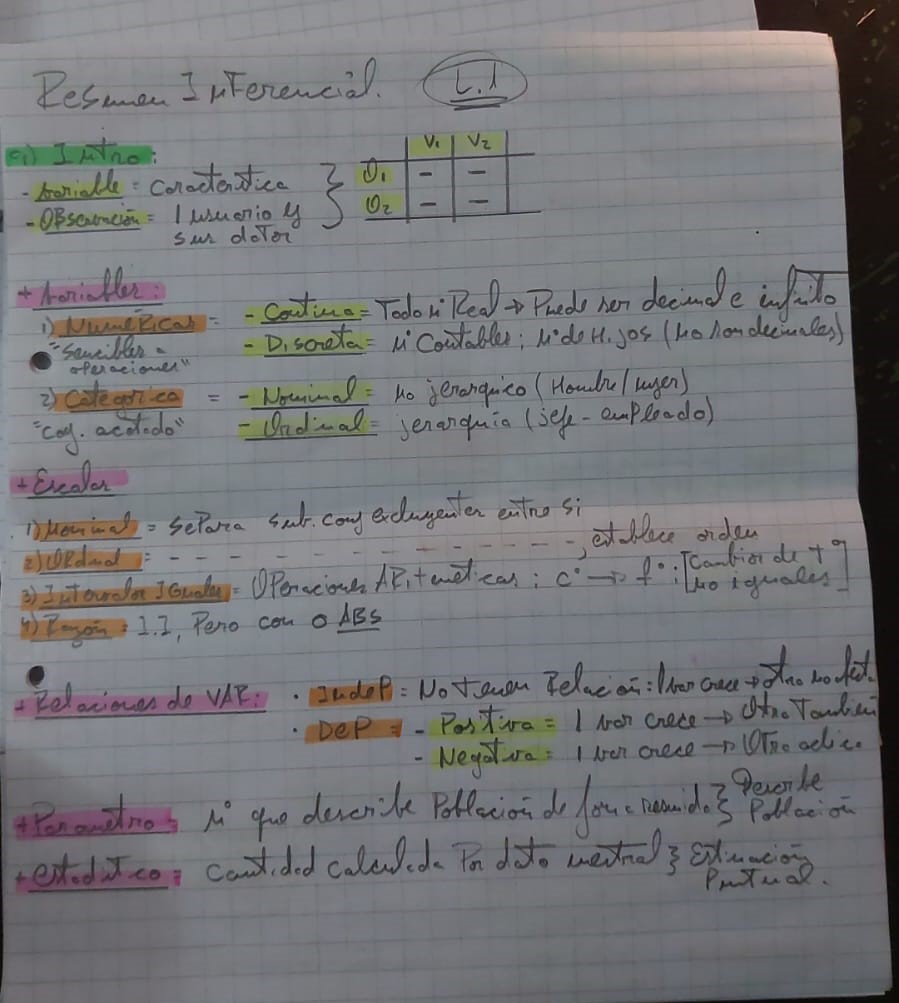 Resumen Inferencial. C.1
a) Intro:
- Variable = Característica
- OBservación = 1 usuario y
sus datos
V1 V2
O1 - -
O2 - -
+ Variables:
1) Numéricas = - Continua = Todo n° Real → Puede ser decimal e infinito
"Sencibles a - Discreta = n° Contables; n° de Hijos (no son decimales)
operaciones"
2) Categorica = - Nominal = no jerarquico (Hombre/mujer)
"conj. acotado" - Ordinal = jerarquía (jefe - empleado)
+ Escalas
1) Nominal = separa sub. conj excluyentes entre si
2) ORdinal = - - - - - - - - - - - - - -, establece orden
3) Intervalos Iguales = Operaciones ARitmeticas; c° → f°: [Cambios de t°
no iguales]
4) Razón = I.I, Pero con 0 ABS
+ Relaciones de VAR: · IndeP = No tienen Relación: 1 var crece → otra no
· DeP = - Positiva = 1 var crece → Otra También
- Negativa = 1 var crece → Otra
+ Parametro = n° que describe Población de forma resumida } Describe
Población
+ estadítico = cantidad calculada Por dato mestral } Estimación
Puntual.